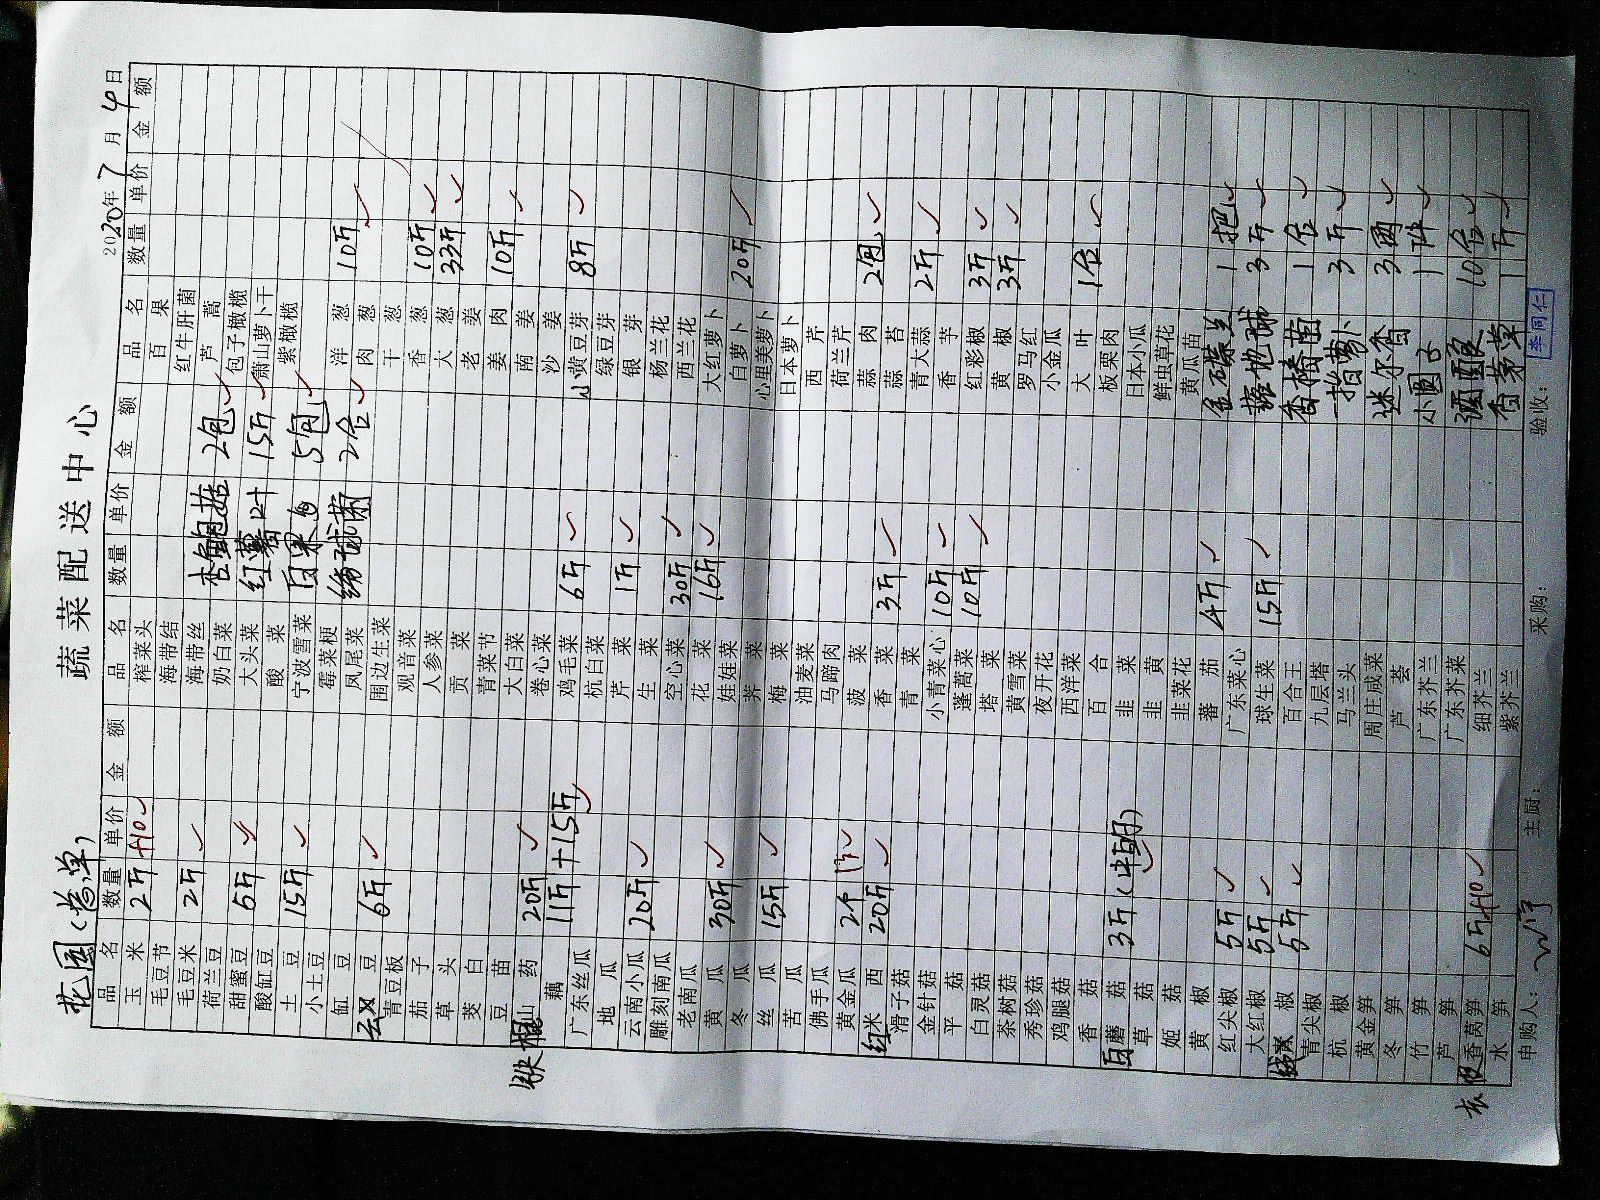 蔬菜配送中心
2020年7月4日
品名 数量 单价 金额 品名 数量 单价 金额 品名 数量 单价 金额
玉米 2斤 +10
毛豆节
毛豆米 2斤
荷兰豆
甜蜜豆 5斤
酸缸豆
土豆 15斤
小土豆
缸豆
豆 6斤
青豆板
茄子
草头
茭白
豆苗
铁棍山药 20斤
藕 11斤+15斤
广东丝瓜
地瓜
云南小瓜 20斤
雕刻南瓜
老南瓜
黄瓜 30斤
冬瓜
丝瓜 15斤
苦瓜
佛手瓜
黄金瓜 2个
红米西 20斤
滑子菇
金针菇
平菇
白灵菇
茶树菇
秀珍菇
鸡腿菇
香菇
白蘑菇 3斤
草菇
姬菇
黄椒
红尖椒 5斤
大红椒 5斤
线椒 5斤
青尖椒
杭椒
黄金笋
冬笋
竹笋
芦笋
香莴笋 6斤+10
水笋
榨菜头
海带结
海带丝
奶白菜 杏鲍菇 2包
大头菜 红薯叶 15斤
酸菜
宁波雪菜 白果 5包
霉菜梗
凤尾菜 绣球菌 2合
围边生菜
观音菜
人参菜
贡菜
青菜节
大白菜
卷心菜
鸡毛菜 6斤
杭白菜
芹菜 1斤
生菜
空心菜 30斤
花菜 16斤
娃娃菜
荠菜
梅菜
油麦菜
马蹄肉
菠菜
香菜 3斤
青菜
小青菜心 10斤
蓬蒿菜 10斤
塔菜
黄雪菜
夜开花
西洋菜
百合
韭菜
韭黄
韭菜花
蕃茄 4斤
广东菜心
球生菜 15斤
百合王
九层塔
马兰头
周庄咸菜
芦荟
广东芥兰
广东芥菜
细芥兰
紫芥兰
百果
红牛肝菌
芦蒿
包子橄榄
萧山萝卜干
紫橄榄
洋葱 10斤
肉葱
干葱
香葱 10斤
大葱 33斤
老姜
姜肉 10斤
南姜
沙姜
小黄豆芽 8斤
绿豆芽
银芽
杨兰花
西兰花
大红萝卜
白萝卜 20斤
心里美萝卜
日本萝卜
西芹
荷兰芹
蒜肉 2包
蒜苔
青大蒜 2斤
香芋
红彩椒 3斤
黄椒 3斤
罗马红
小金瓜
大叶 1合
板栗肉
日本小瓜
鲜虫草花
黄瓜苗
金碟兰 1把
3斤
香椿苗 1合
3斤
迷尔香 3两
小圆子 1件
10合
香茅草 1斤
申购人： 主厨： 采购： 验收： 李同仁